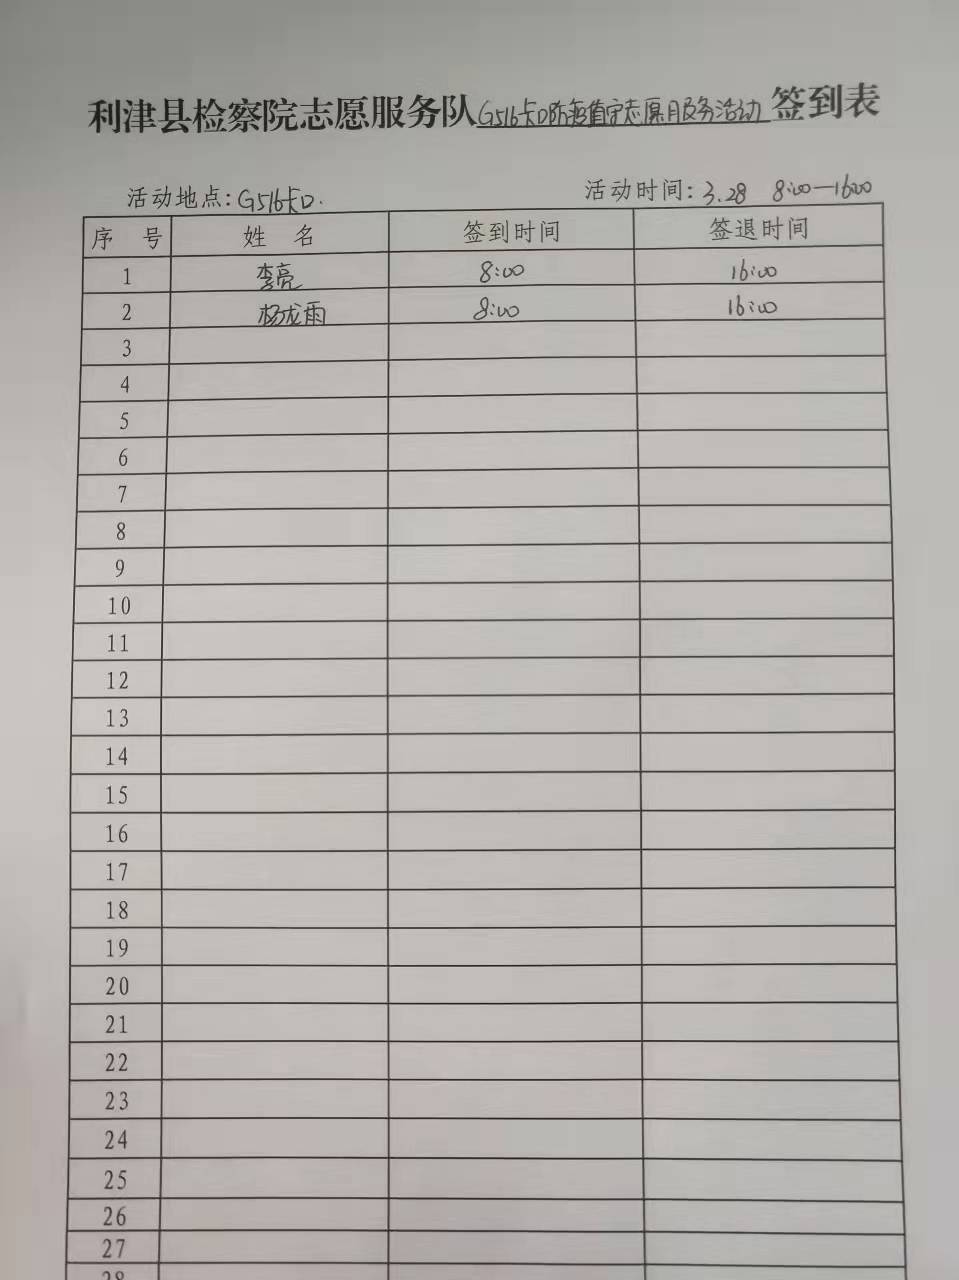 利津县检察院志愿服务队G516卡口防疫值守志愿服务活动签到表
活动地点:G516卡口. 活动时间:3.28 8:00—16:00
序 号 姓 名 签到时间 签退时间
1 李亮 8:00 16:00
2 杨龙雨 8:00 16:00
3
4
5
6
7
8
9
10
11
12
13
14
15
16
17
18
19
20
21
22
23
24
25
26
27
28